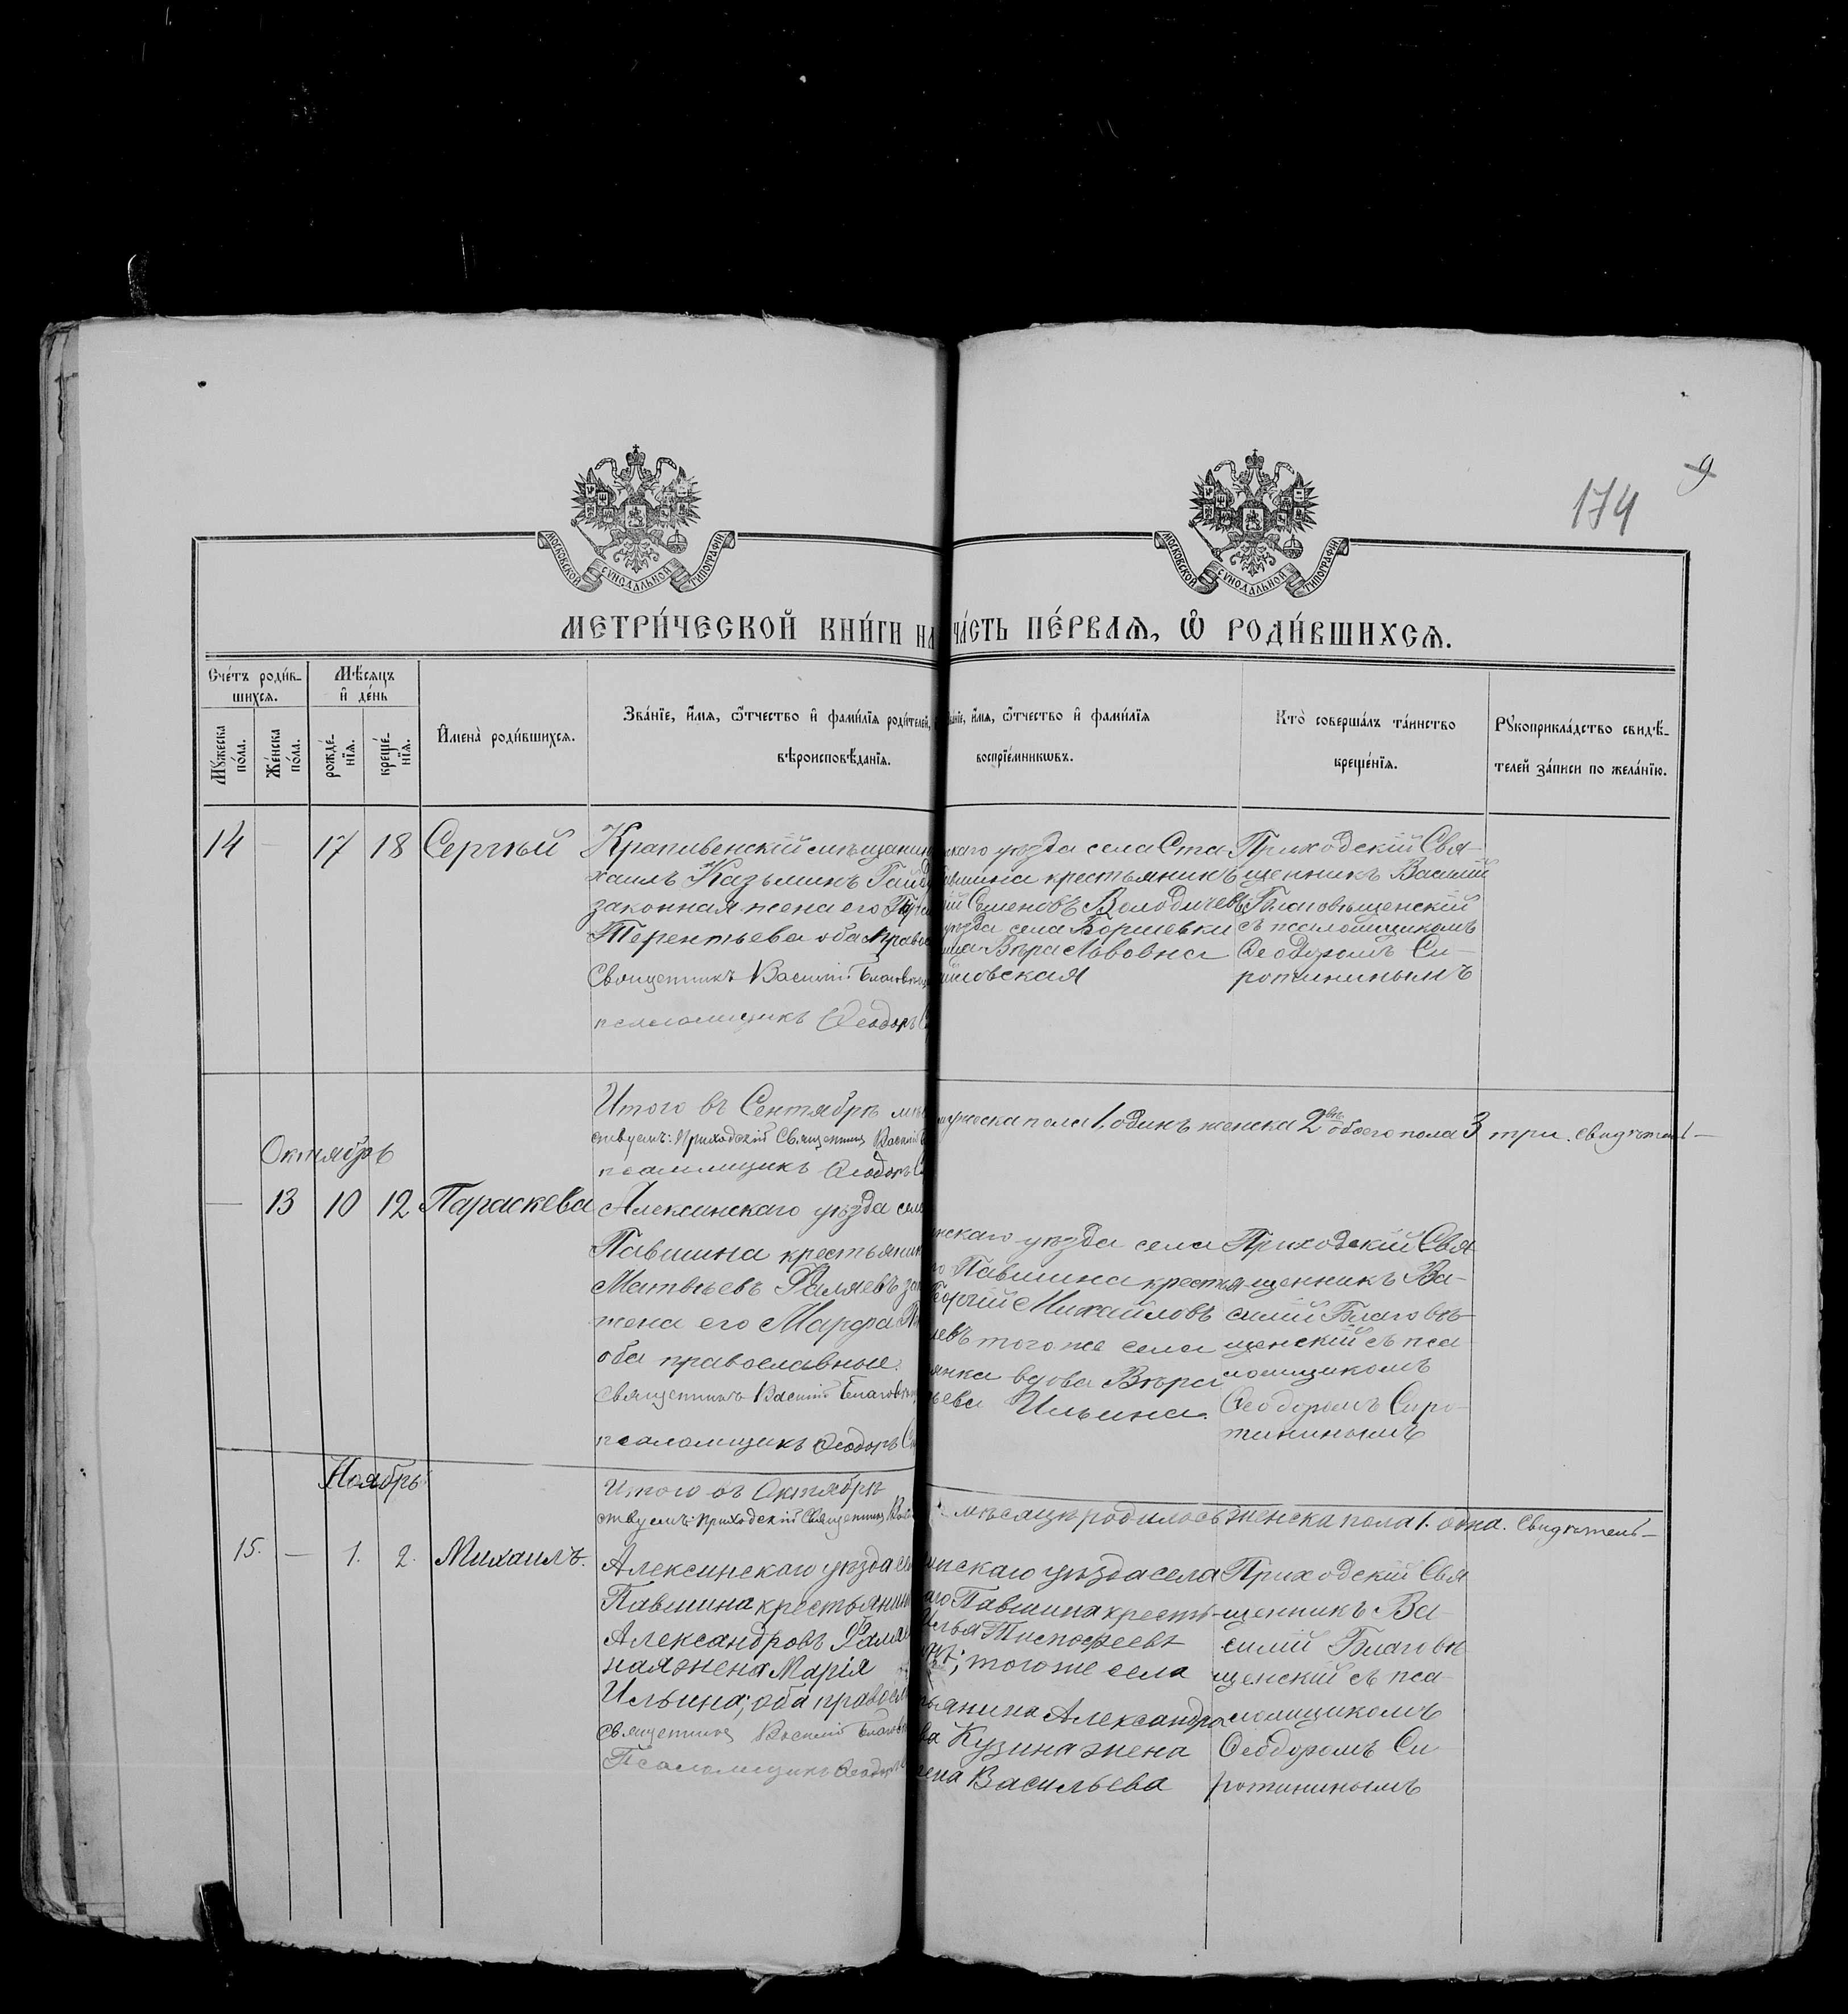 174
9
МОСКОВСКОЙ СѴНОДАЛЬНОЙ ТИПОГРАФІИ
МОСКОВСКОЙ СѴНОДАЛЬНОЙ ТИПОГРАФІИ
МЕТРИ́ЧЕСКОЙ КНИ́ГИ НА
ЧА́СТЬ ПЕ́РВАѦ, Ѽ РОДИ́ВШИХСѦ.
Сче́тъ роди́в-
шихся.
Мѣ́сяцъ
и҆ де́нь
Мꙋ́жеска
по́ла.
Же́нска
по́ла.
рожде́-
нїя.
креще́-
нїя.
И҆мена̀ роди́вшихся.
Зва́нїе, и҆́мя, ѻ҆́тчество и҆ фами́лїя роди́телей,
вѣроисповѣ́данїя.
и҆́мя, ѻ҆́тчество и҆ фами́лїя
воспрїе́мникѡвъ.
Кто̀ соверша́лъ та́инство
креще́нїя.
Рꙋкоприкла́дство свидѣ́-
телей за́писи по жела́нїю.
14 — 17 18 Сергѣй
Крапивенскій мѣщанин
хаилъ Казьминъ
законная жена его
Терентьева оба право
Священникъ Василій Благовѣщ
псаломщикъ Ѳеодоръ С
скаго уѣзда села Ста
вшина крестьянинъ
ій Семеновъ Володичевъ
уѣзда села Боршевки
Вѣра Львовна
Приходскій Свя-
щенникъ Василій
Благовѣщенскій
съ псаломщикомъ
Ѳеодоромъ Си-
ротининымъ
Итого въ Сентябрѣ мѣ
ствуемъ: Приходскій Священник Василій
псаломщикъ Ѳеодоръ С
мужеска пола 1. одинъ женска 2 двѣ обоего пола 3 три. Свидѣтель-
Октябрь
— 13 10 12 Параскева
Алексинскаго уѣзда села
Павшина крестьянин
Матвѣевъ Фаляевъ зак
жена его Марфа
оба православные.
Священникъ Василій Благовѣщ
псаломщикъ Ѳеодоръ С
нскаго уѣзда села
Павшина крестья
Георгій Михайловъ
евъ того же села
янка вдова Вѣра
ьева Ильина.
Приходскій Свя
щенникъ Ва-
силій Благовѣ-
щенскій съ пса
ломщикомъ
Ѳеодоромъ Сиро-
тининымъ
Ноябрь
Итого въ Октябрѣ
ствуемъ: Приходскій Священник Васи
мѣсяцѣ родилось женска пола 1. одна. Свидѣтель-
15. — 1. 2. Михаилъ.
Алексинскаго уѣзда се
Павшина крестьянин
Александровъ Фаля
ная жена Марія
Ильина; оба правосл
Священник Василій Благовѣ
Псаломщикъ Ѳеодоръ
инскаго уѣзда села
аго Павшина кресть-
Илья Тимофеевъ
того же села
ьянина Александра
ва Кузина жена
ена Васильева
Приходскій Свя
щенникъ Ва-
силій Благовѣ
щенскій съ пса-
ломщикомъ
Ѳеодоромъ Си
ротининымъ